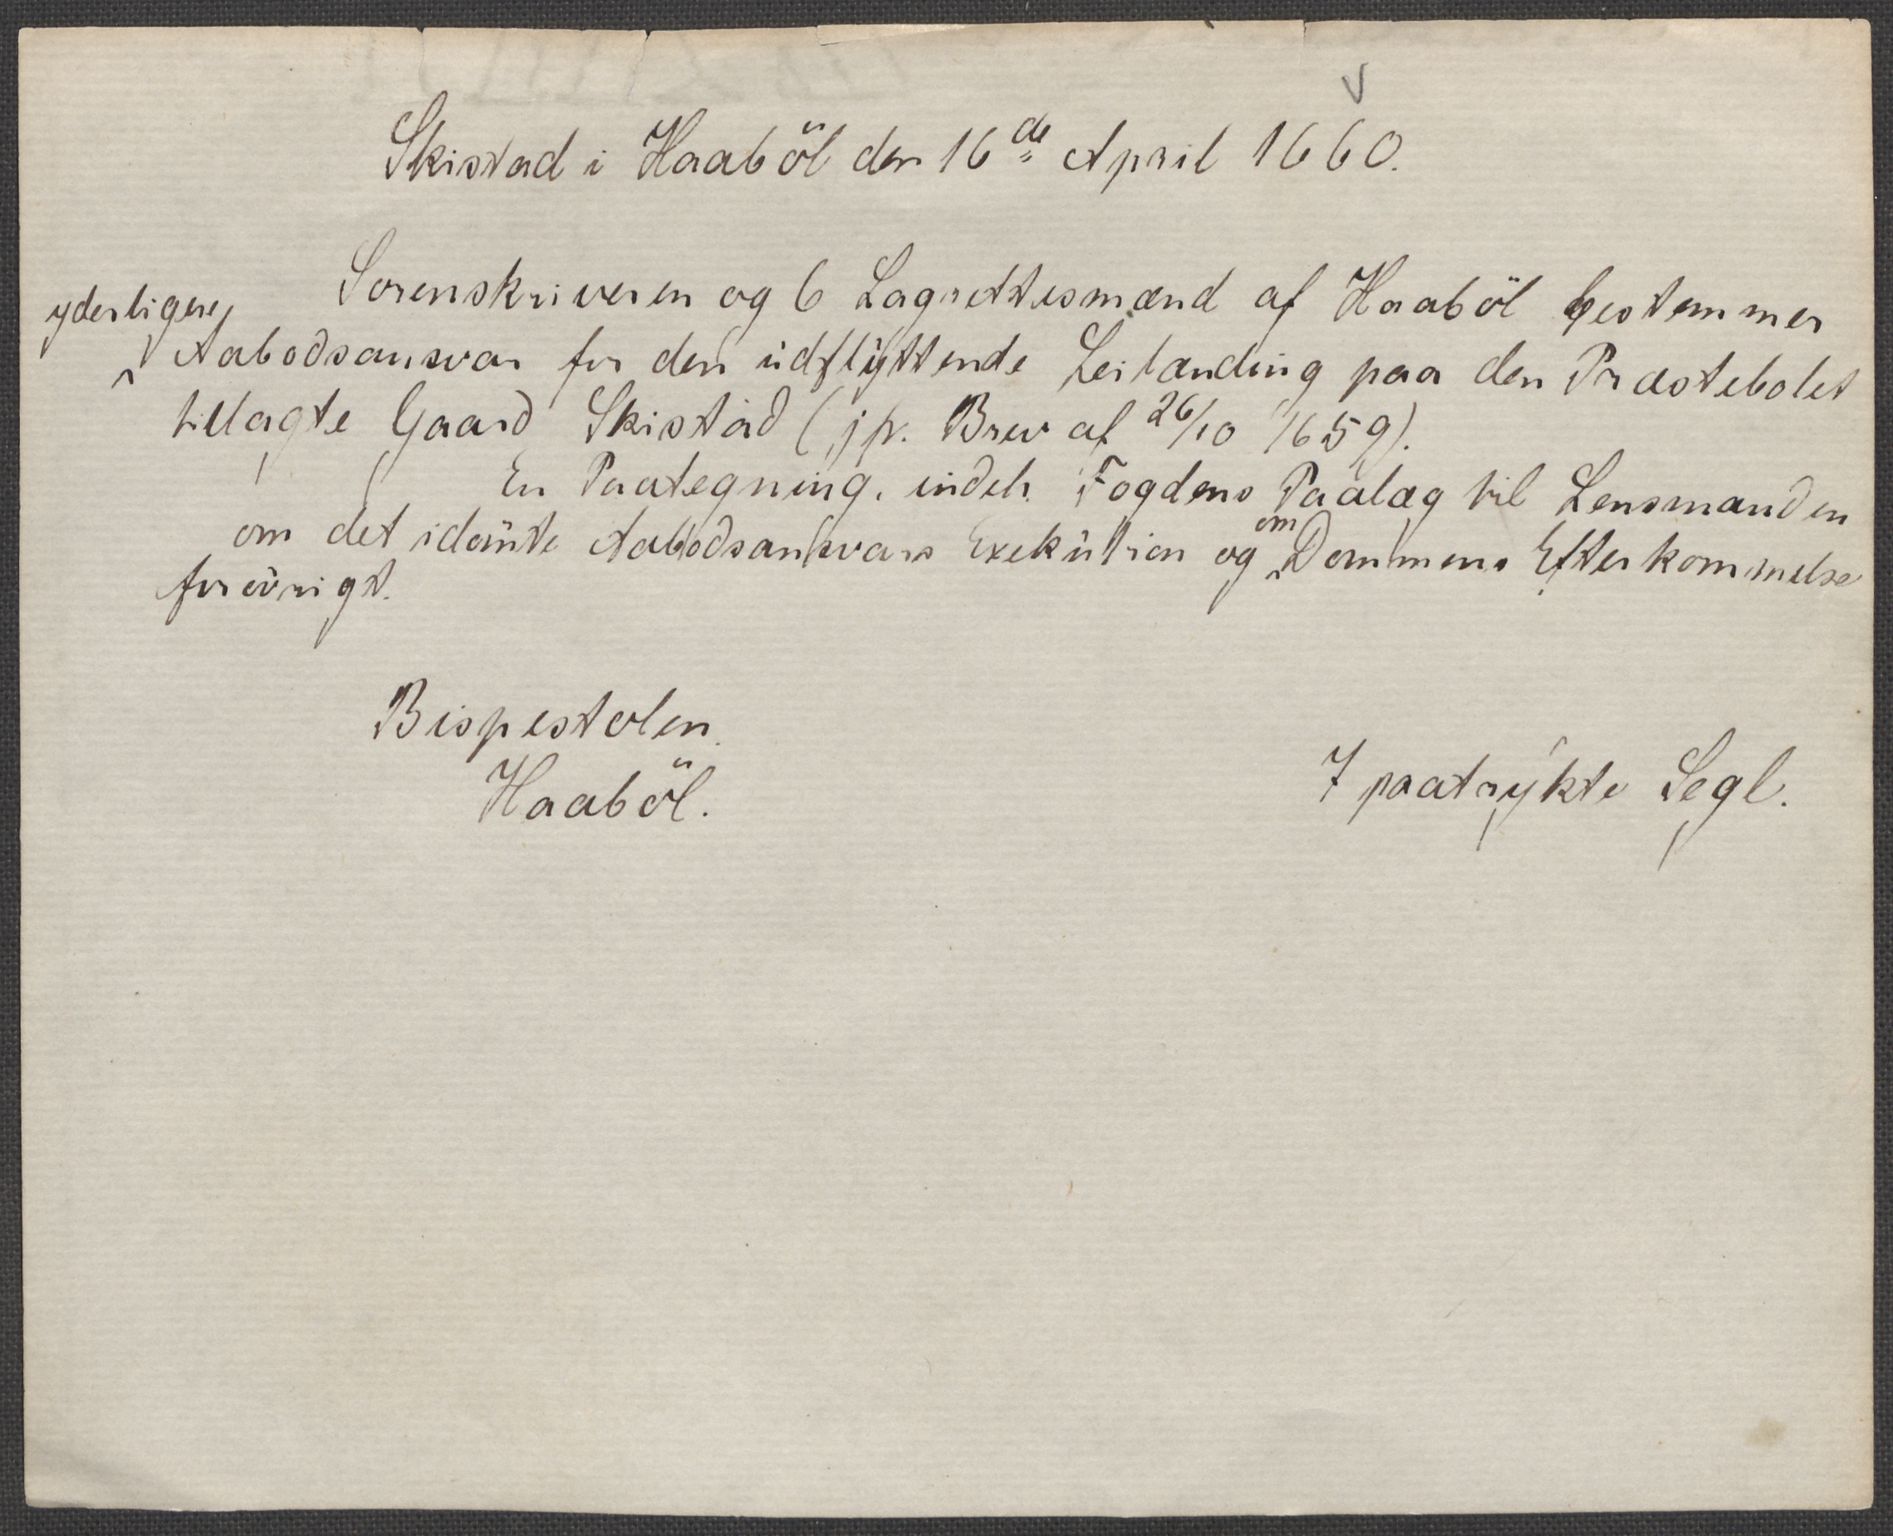 Skistad i Haaböl den 16de April 1660.
Sorenskriveren og 6 Lagrettesmænd af Haaböl bestemmer
yderligere Aabodsansvar for den udflyttende Leilænding paa den Præstebolet
tillagte Gaard Skistad (jfr. Brev af 26/10 1659).
En Paategning, indeh. Fogdens Paalæg til Lensmanden
om det idömte Aabodsansvars Exekution og om Dommens Efterkommelse
forövrigt.
Bispestolen.
Haaböl.
7 paatrykte Segl.